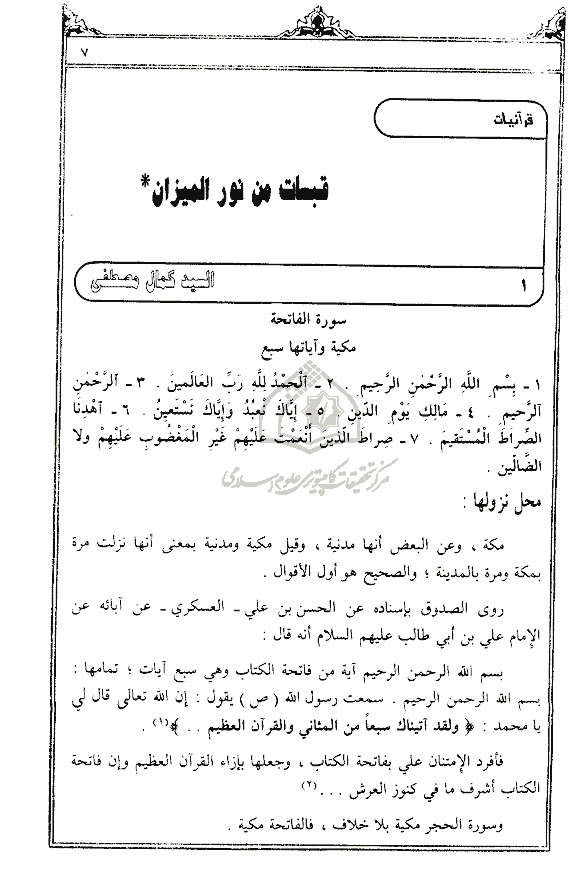 ٧
قرآنيات
قبسات من نور الميزان*
١
السيد كمال مصطفى
سورة الفاتحة
مكية وآياتها سبع
١ ـ بِسْمِ اللَّهِ الرَّحْمٰنِ الرَّحِيمِ . ٢ ـ اَلْحَمْدُ لِلَّهِ رَبِّ العَالَمِينَ . ٣ ـ اَلرَّحْمٰنِ
اَلرَّحِيمِ . ٤ ـ مَالِكِ يَوْمِ الدِّينِ . ٥ ـ إِيَّاكَ نَعْبُدُ وَإِيَّاكَ نَسْتَعِينُ . ٦ ـ اَهْدِنَا
الصِّرَاطَ الْمُسْتَقِيمَ . ٧ ـ صِرَاطَ الَّذِينَ أَنْعَمْتَ عَلَيْهِمْ غَيْرِ الْمَغْضُوبِ عَلَيْهِمْ وَلا
الضَّالِّينَ .
مركز تحقيقات كامپيوتری علوم اسلامی
محل نزولها :
مكة ، وعن البعض أنها مدنية ، وقيل مكية ومدنية بمعنى أنها نزلت مرة
بمكة ومرة بالمدينة ؛ والصحيح هو أول الأقوال .
روى الصدوق بإسناده عن الحسن بن علي ـ العسكري ـ عن آبائه عن
الإمام علي بن أبي طالب عليهم السلام أنه قال :
بسم الله الرحمن الرحيم آية من فاتحة الكتاب وهي سبع آيات ؛ تمامها :
بسم الله الرحمن الرحيم . سمعت رسول الله ( ص ) يقول : إن الله تعالى قال لي
يا محمد : ﴿ ولقد آتيناك سبعاً من المثاني والقرآن العظيم . . ﴾(١) .
فأفرد الإمتنان علي بفاتحة الكتاب ، وجعلها بإزاء القرآن العظيم وإن فاتحة
الكتاب أشرف ما في كنوز العرش . . .(٢)
وسورة الحجر مكية بلا خلاف ، فالفاتحة مكية .